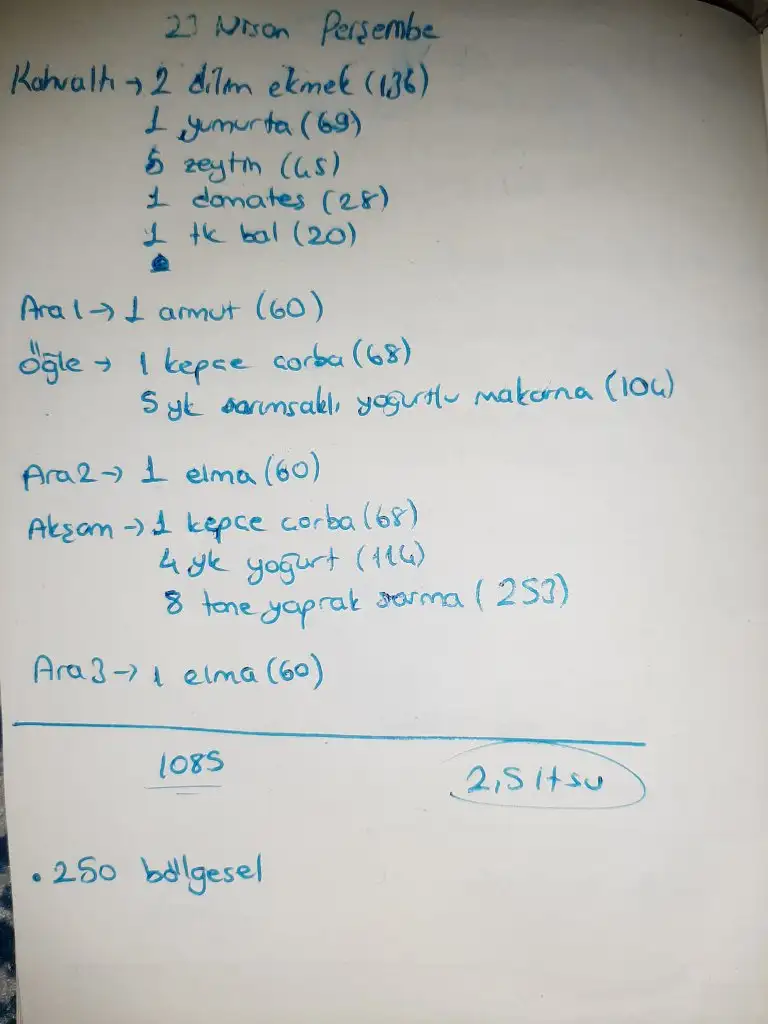 23 Nisan Perşembe
Kahvaltı → 2 dilim ekmek (136)
1 yumurta (69)
5 zeytin (45)
1 domates (28)
1 tk bal (20)
Ara1 → 1 armut (60)
Öğle → 1 kepçe çorba (68)
5 yk sarımsaklı yoğurtlu makarna (104)
Ara2 → 1 elma (60)
Akşam → 1 kepçe çorba (68)
4 yk yoğurt (114)
8 tane yaprak sarma (253)
Ara3 → 1 elma (60)
1085
2,5 lt su
• 250 bölgesel